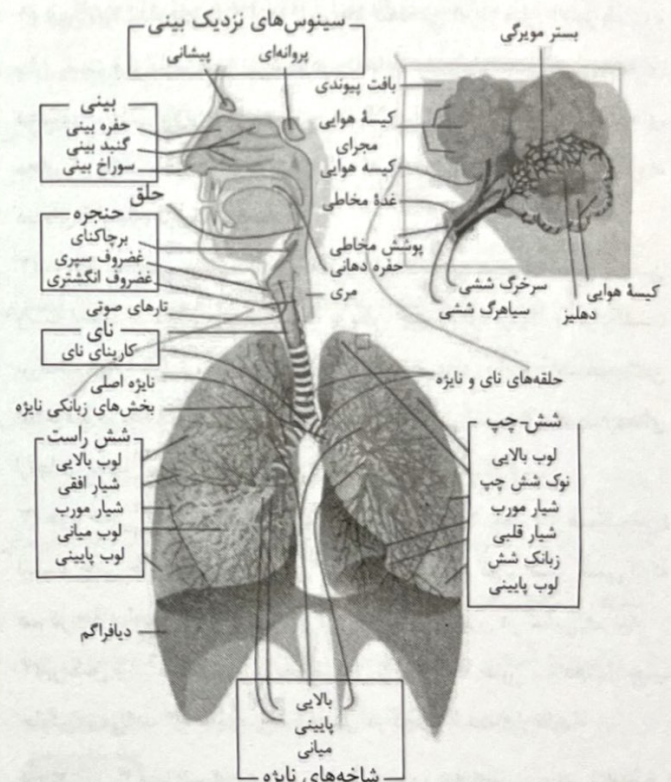 سینوس‌های نزدیک بینی
پروانه‌ای
پیشانی
بینی
حفره بینی
گنبد بینی
سوراخ بینی
حلق
حنجره
برچاکنای
غضروف سپری
غضروف انگشتری
تارهای صوتی
نای
کارینای نای
نایژه اصلی
بخش‌های زبانکی نایژه
شش راست
لوب بالایی
شیار افقی
شیار مورب
لوب میانی
لوب پایینی
دیافراگم
بستر مویرگی
بافت پیوندی
کیسهٔ هوایی
مجرای
کیسه هوایی
غدهٔ مخاطی
پوشش مخاطی
حفره دهانی
مری
سرخرگ ششی
سیاهرگ ششی
کیسهٔ هوایی
دهلیز
حلقه‌های نای و نایژه
شش-چپ
لوب بالایی
نوک شش چپ
شیار مورب
شیار قلبی
زبانک شش
لوب پایینی
بالایی
پایینی
میانی
شاخه‌های نایژه